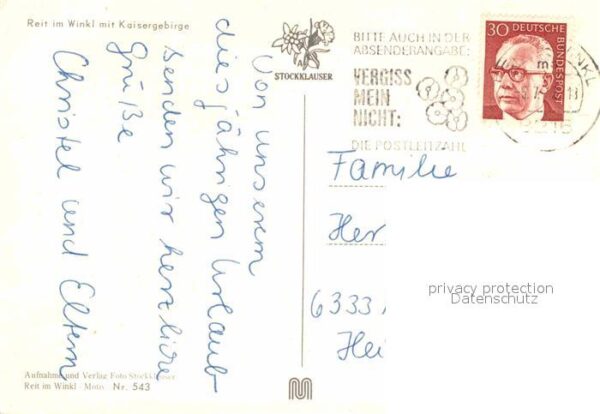 Reit im Winkl mit Kaisergebirge
Von unserem
diesjährigen Urlaub
senden wir herzliche
Grüße
Christel und Eltern
Aufnahme und Verlag Foto Stockklauser
Reit im Winkl Motiv Nr. 543
STOCKKLAUSER
BITTE AUCH IN DER
ABSENDERANGABE:
VERGISS
MEIN
NICHT:
DIE POSTLEITZAHL
30 DEUTSCHE
BUNDESPOST
Familie
Her
6333
Hei
privacy protection
Datenschutz